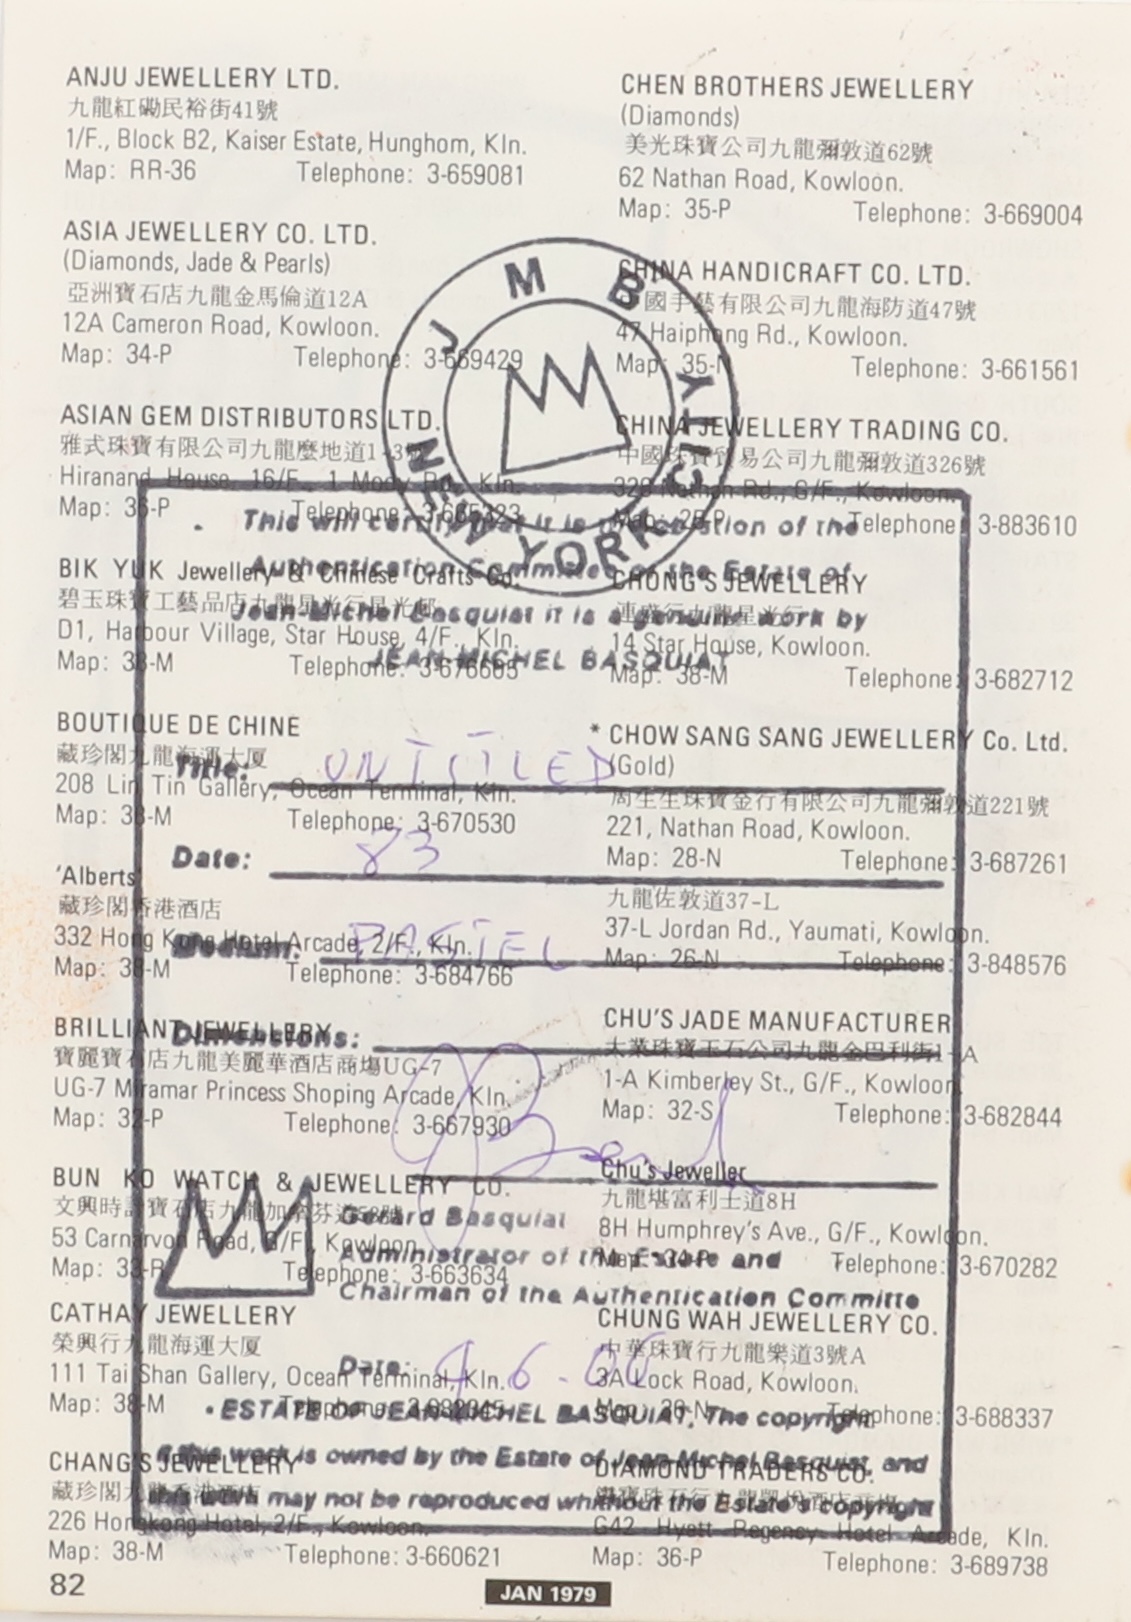 ANJU JEWELLERY LTD.
九龍紅磡民裕街41號
1/F., Block B2, Kaiser Estate, Hunghom, Kln.
Map: RR-36 Telephone: 3-659081
ASIA JEWELLERY CO. LTD.
(Diamonds, Jade & Pearls)
亞洲寶石店九龍金馬倫道12A
12A Cameron Road, Kowloon.
Map: 34-P Telephone: 3-669429
ASIAN GEM DISTRIBUTORS LTD.
雅式珠寶有限公司九龍麼地道1-3號
Hiranand House, 16/F., 1 Mody Rd., Kln.
Map: 36-P Telephone: 3-665323
BIK YUK Jewellery & Chinese Crafts Co.
碧玉珠寶工藝品店九龍星光行星光邨
D1, Harbour Village, Star House, 4/F., Kln.
Map: 38-M Telephone: 3-676605
BOUTIQUE DE CHINE
藏珍閣九龍海運大厦
208 Lin Tin Gallery, Ocean Terminal, Kln.
Map: 38-M Telephone: 3-670530
'Alberts'
藏珍閣香港酒店
332 Hong Kong Hotel Arcade, 2/F., Kln.
Map: 38-M Telephone: 3-684766
BRILLIANT JEWELLERY
寶麗寶石店九龍美麗華酒店商場UG-7
UG-7 Miramar Princess Shoping Arcade, Kln.
Map: 32-P Telephone: 3-667930
BUN KO WATCH & JEWELLERY CO.
文興時計寶石店九龍加拿芬道53號
53 Carnarvon Road, G/F., Kowloon.
Map: 33-R Telephone: 3-663634
CATHAY JEWELLERY
榮興行九龍海運大厦
111 Tai Shan Gallery, Ocean Terminal, Kln.
Map: 38-M Telephone:
CHANG'S JEWELLERY
藏珍閣九龍香港酒店
226 Hongkong Hotel, 2/F., Kowloon.
Map: 38-M Telephone: 3-660621
CHEN BROTHERS JEWELLERY
(Diamonds)
美光珠寶公司九龍彌敦道62號
62 Nathan Road, Kowloon.
Map: 35-P Telephone: 3-669004
CHINA HANDICRAFT CO. LTD.
中國手藝有限公司九龍海防道47號
47 Haiphong Rd., Kowloon.
Map: 35-N Telephone: 3-661561
CHINA JEWELLERY TRADING CO.
中國珠寶貿易公司九龍彌敦道326號
326 Nathan Rd., G/F., Kowloon.
Map: Telephone: 3-883610
CHONG'S JEWELLERY
14 Star House, Kowloon.
Map: 38-M Telephone: 3-682712
* CHOW SANG SANG JEWELLERY Co. Ltd.
(Gold)
周生生珠寶金行有限公司九龍彌敦道221號
221, Nathan Road, Kowloon.
Map: 28-N Telephone: 3-687261
九龍佐敦道37-L
37-L Jordan Rd., Yaumati, Kowloon.
Map: 26-N Telephone: 3-848576
CHU'S JADE MANUFACTURER
大業珠寶玉石公司九龍金巴利街1-A
1-A Kimberley St., G/F., Kowloon.
Map: 32-S Telephone: 3-682844
Chu's Jeweller
九龍堪富利士道8H
8H Humphrey's Ave., G/F., Kowloon.
Map: 34-P Telephone: 3-670282
CHUNG WAH JEWELLERY CO.
中華珠寶行九龍樂道3號A
3A Lock Road, Kowloon.
Map: 36-N Telephone: 3-688337
DIAMOND TRADERS CO.
G42 Hyett Regency Hotel Arcade, Kln.
Map: 36-P Telephone: 3-689738
82
JAN 1979
J M B
NEW YORK CITY
This will certify that it is the opinion of the
Authentication Committee of the Estate of
Jean-Michel Basquiat it is a genuine work by
JEAN MICHEL BASQUIAT
Title: UNTITLED
Date: 83
Medium: PASTEL
Dimensions:
Gerard Basquiat
Administrator of the Estate and
Chairman of the Authentication Committe
Date: 4.6.06
• ESTATE OF JEAN-MICHEL BASQUIAT, The copyright
if this work is owned by the Estate of Jean Michel Basquiat, and
this work may not be reproduced whithout the Estate's copyright